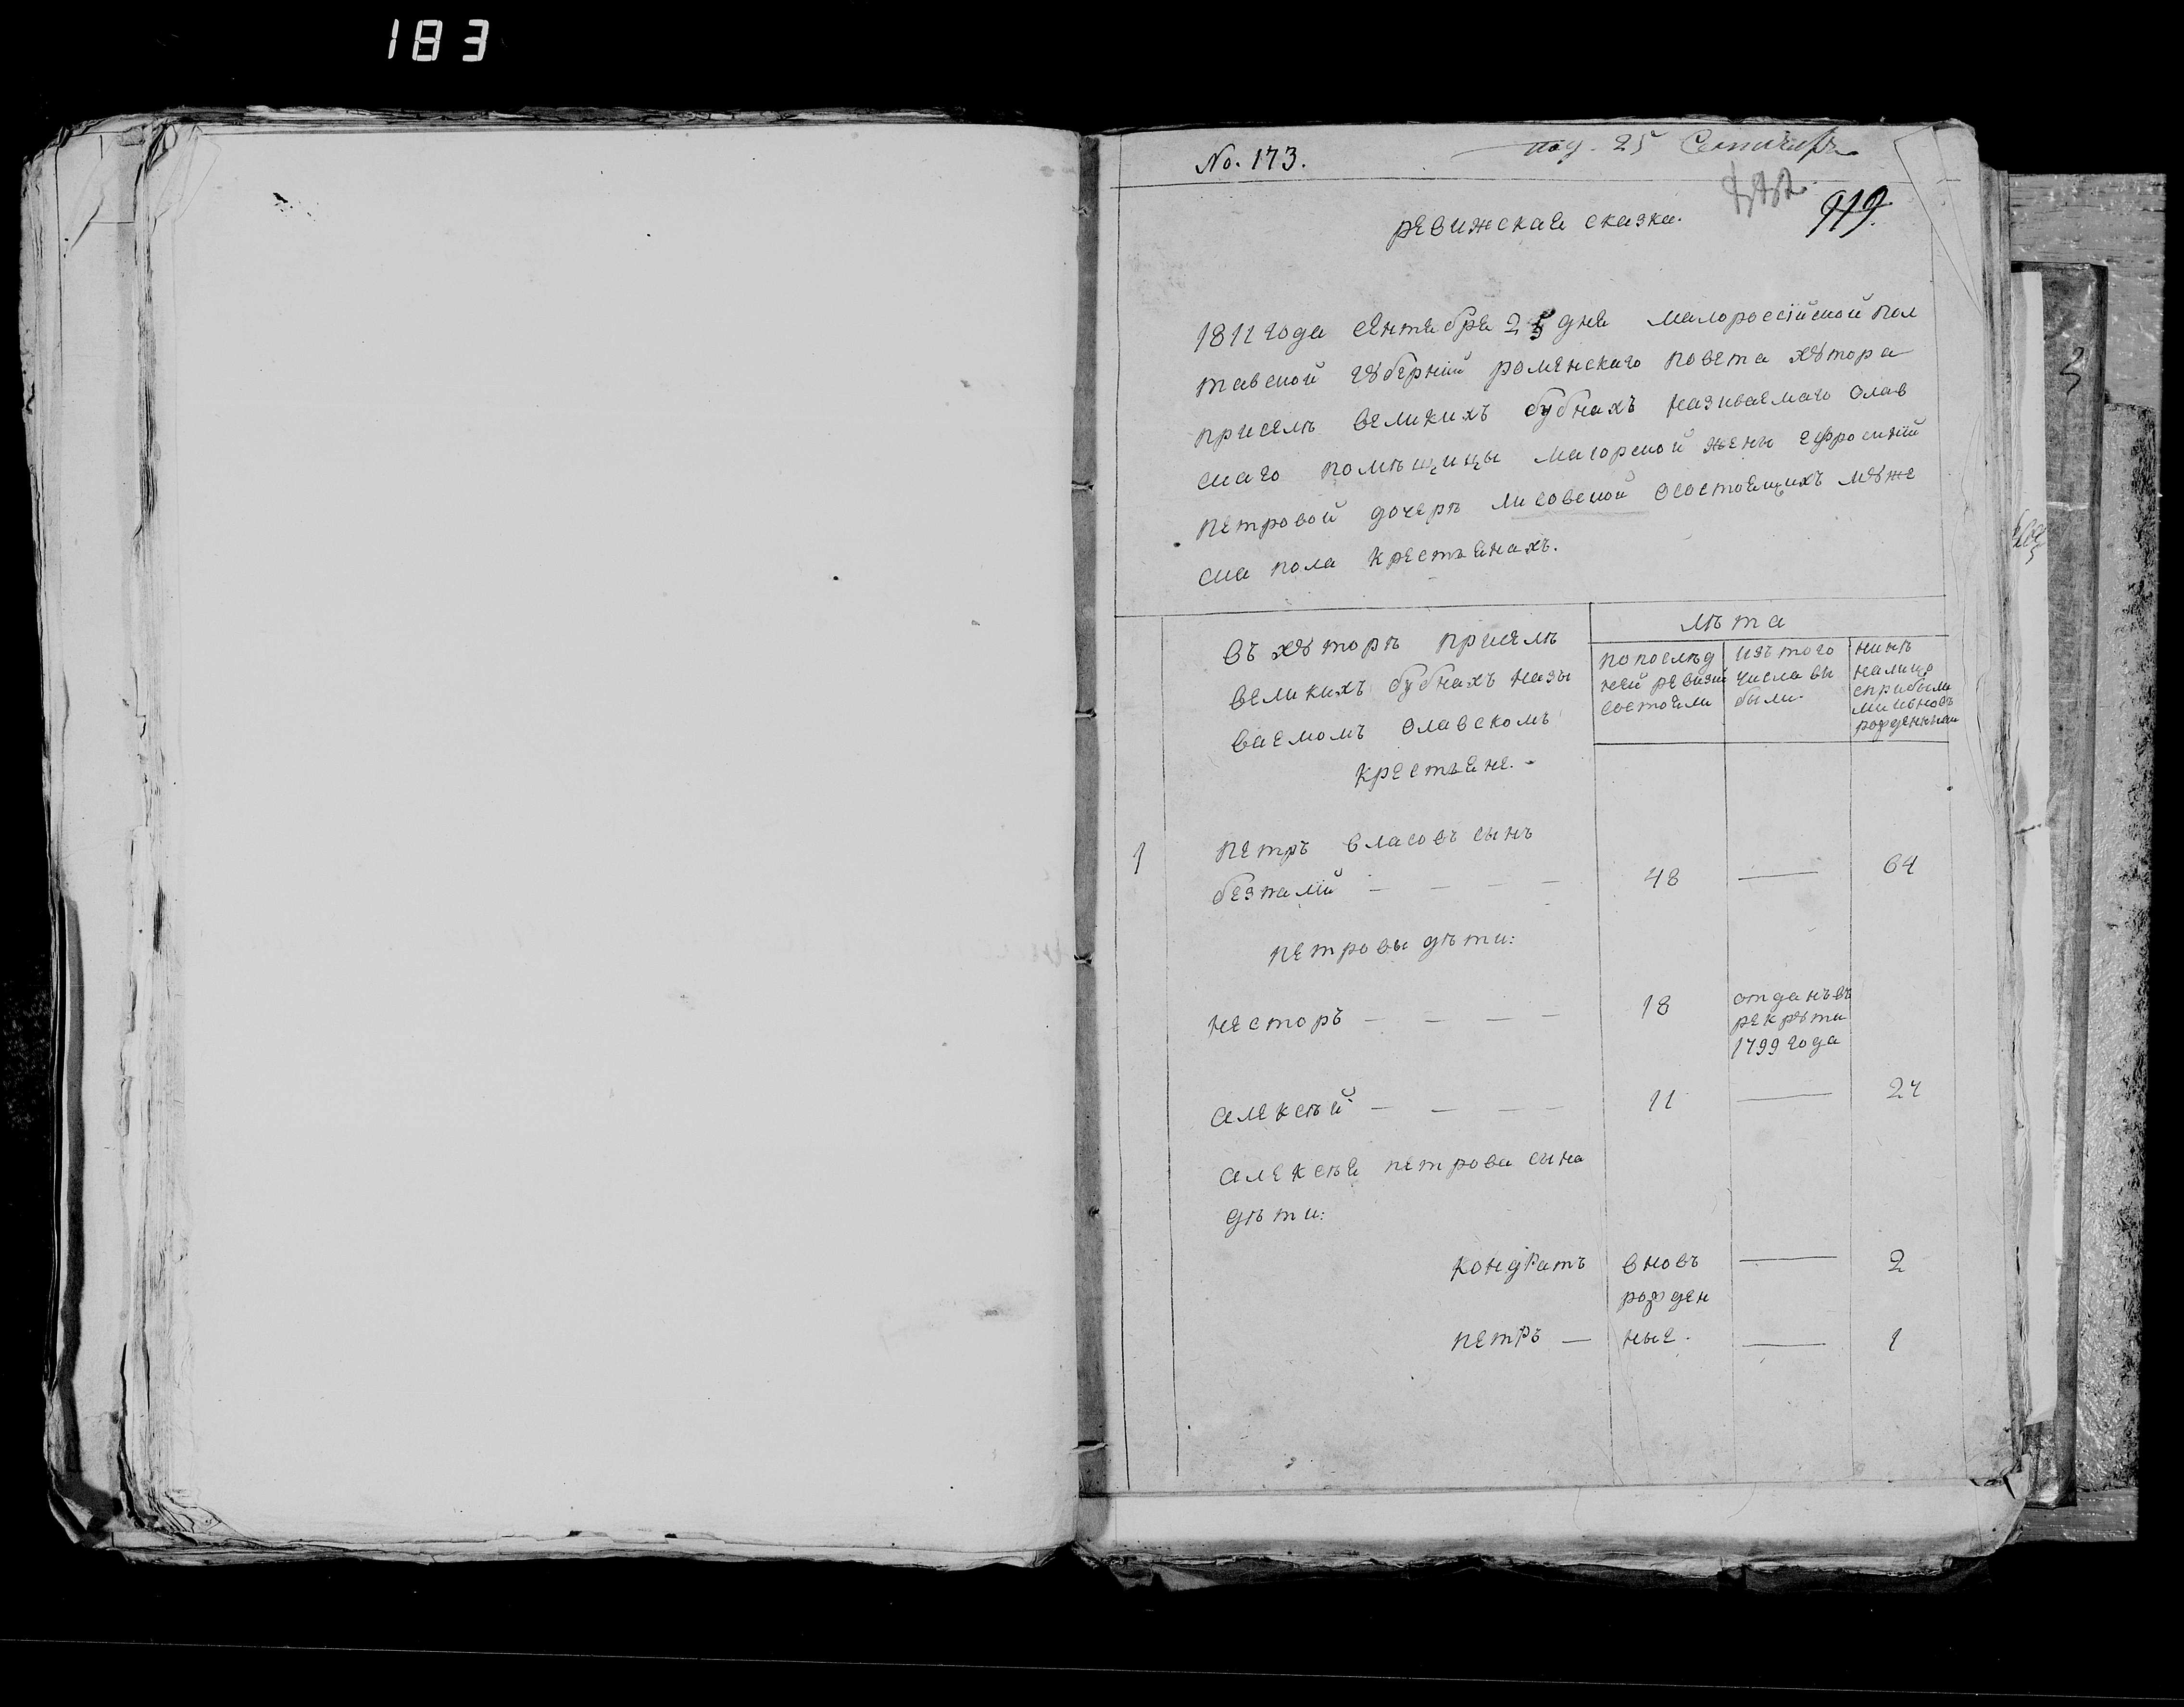 183
No. 173.
под. 25 Сентября
919.
ревижская сказка.
1811 года сентября 25 дня малороссійской пол
тавской губерніи роменскаго повета хутора
приселѣ великихъ бубнахъ называемаго слав
скаго помѣщицы маіорской жены ефросиніи
петровой дочерѣ лисовской осостоящихъ муже
ска пола крестьянахъ.
въ хуторѣ приселѣ
великихъ бубнахъ назы
ваемомъ славскомъ
крестьяне.
лѣта
попослѣд
ней ревизіи
состояли
изъ того
числа вы
были.
нинѣ
налицо
сприбылы
ми ивновь
рожденными
1
петръ власовъ сынъ
безпалій — — — — 48 — 64
петровы дѣти:
несторъ — — — — 18
отданъ въ
рекруты
1799 года
алексѣй — — — — 11 — 24
алексѣя петрова сына
дѣти:
кондратъ вновь — 2
рожден
петръ — ные. — 1